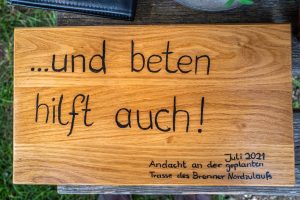 ...und beten
hilft auch!
Juli 2021
Andacht an der geplanten
Trasse des Brenner Nordzulaufs